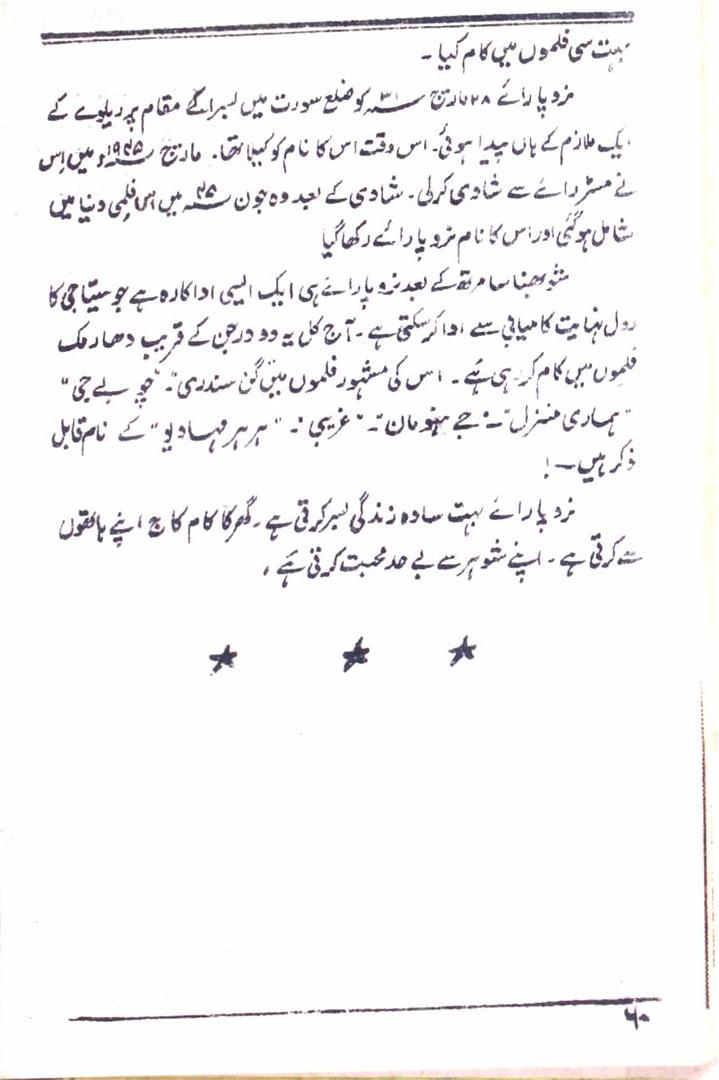 بہت سی فلموں میں کام کیا ۔
نروپا رائے ۲۸ مارچ ۳۱ء کو ضلع سورت میں لبرا کے مقام پر ریلوے کے
ایک ملازم کے ہاں پیدا ہوئی۔ اس وقت اس کا نام کوکیلا تھا۔ مارچ ۱۹۴۵ء میں اس
نے مسٹر رائے سے شادی کرلی۔ شادی کے بعد وہ جون ۴۵ء میں اس فلمی دنیا میں
شامل ہوگئی اور اس کا نام نروپا رائے رکھا گیا
شوبھنا سامرتھ کے بعد نروپا رائے ہی ایک ایسی اداکارہ ہے جو سیتا جی کا
رول نہایت کامیابی سے ادا کرسکتی ہے۔ آج کل یہ دو درجن کے قریب دھارمک
فلموں میں کام کر رہی ہے ۔ اس کی مشہور فلموں میں گن سندری"۔ "جے جی"
"ہماری منزل"۔ "جے ہنومان"۔ "غریبی"۔ "ہر ہر مہادیو" کے نام قابل
ذکر ہیں ۔!
نروپا رائے بہت سادہ زندگی بسر کرتی ہے۔ گھر کا کام کاج اپنے ہاتھوں
سے کرتی ہے۔ اپنے شوہر سے بے حد محبت کرتی ہے ،
۶۰